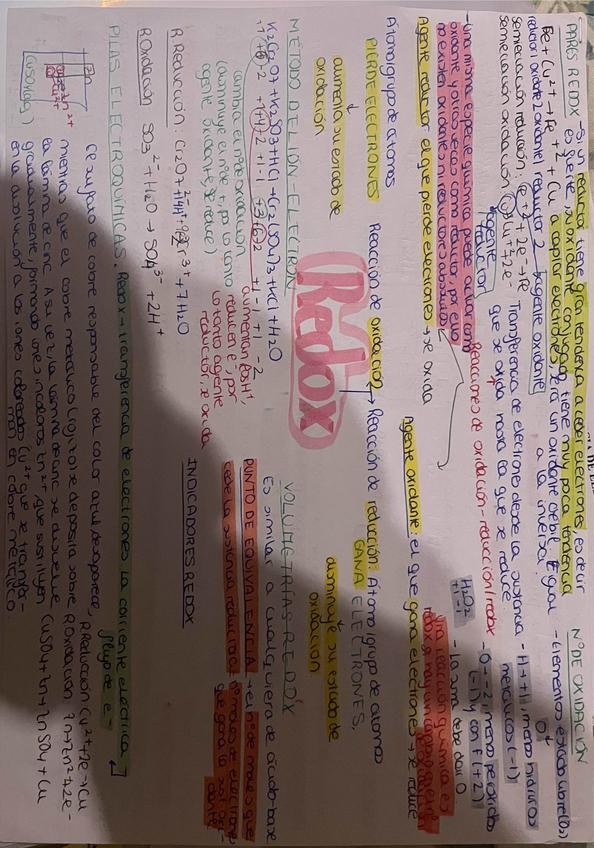 PARES REDOX
Si un reductor tiene gran tendencia a ceder electrones, es decir
es fuerte, su oxidante conjugado tiene muy poca tendencia
a captar electrones, será un oxidante débil e igual
a la inversa.
Fe + Cu²⁺ → Fe + 2 + Cu
reductor oxidante 2 oxidante 1 reductor 2
semireacción reducción:
semireacción oxidación:
agente oxidante
agente reductor
Nº DE OXIDACIÓN
- Elementos estado libre (O₂)
0
- H → +1, menos hidruros
metálicos (-1)
- O → -2, menos peróxidos
(-1) y con F (+2)
H₂O₂
+1 -1
- La suma debe dar 0.
Reacciones de oxidación-reducción/redox
Transferencia de electrones desde la sustancia
que se oxida hasta la que se reduce
Una reacción química es
redox si hay un cambio en el nº
- Una misma especie química puede actuar como
oxidante y otras veces como reductor, por ello
no existen oxidantes ni reductores absolutos
Agente reductor: el que pierde electrones → se oxida
Agente oxidante: el que gana electrones → se reduce
Átomo/grupo de átomos
PIERDE ELECTRONES
↓
aumenta su estado de
oxidación
Reacción de oxidación → Reacción de reducción: Átomo/grupo de átomos
GANA ELECTRONES,
disminuye su estado de
oxidación
Redox
MÉTODO DEL IÓN-ELECTRÓN
K₂Cr₂O₇ + K₂SO₃ + HCl → Cr₂(SO₄)₃ + KCl + H₂O
+1 +6 -2 +1 +4 -2 +1 -1 +3 +6 -2 +1 -1 +1 -2
cambia el nº de oxidación
(disminuye el nº de +, por lo tanto
agente oxidante, se reduce)
aumentan los H⁺,
reducen e⁻, por
lo tanto agente
reductor, se oxida
R. Reducción:
R. Oxidación: SO₃²⁻ + H₂O → SO₄²⁻ + 2H⁺
VOLUMETRÍAS REDOX
Es similar a cualquiera de ácido-base
PUNTO DE EQUIVALENCIA → el nº de moles que
cede la sustancia reductora = nº moles de electrones
que gana la sust oxi-
dante
INDICADORES REDOX
PILAS ELECTROQUÍMICAS. Redox → transferencia de electrones. La corriente eléctrica
flujo de e⁻
Zn
(CuSO₄(aq))
Ce sulfato de cobre responsable del color azul desaparece,
mientras que el cobre metálico (rojizo) se deposita sobre
la lámina de cinc. A su vez, la lámina de cinc se disuelve
gradualmente, formando iones incoloros Zn²⁺, que sustituyen
en la disolución a los iones coloreados Cu²⁺ que se transfor-
man en cobre metálico.
R. Reducción Cu²⁺ + 2e → Cu
R. Oxidación Zn → Zn²⁺ + 2e-
CuSO₄ + Zn → ZnSO₄ + Cu